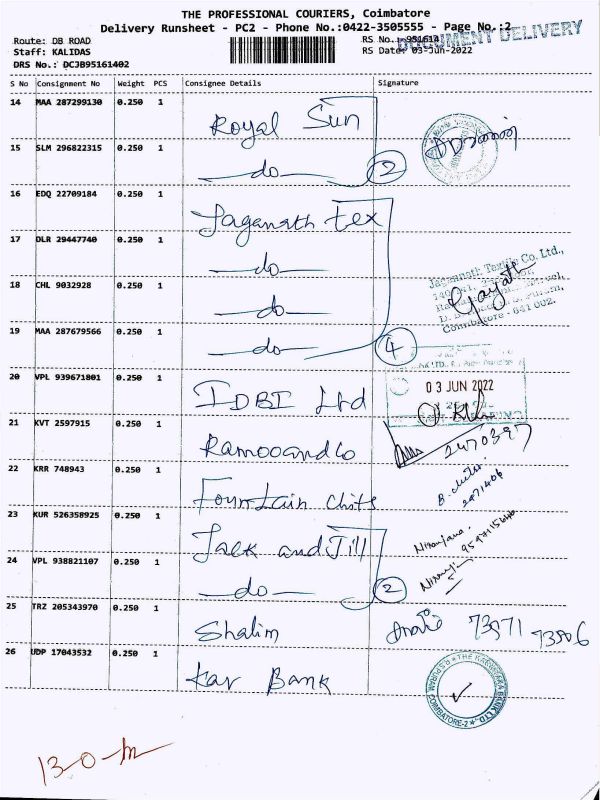 THE PROFESSIONAL COURIERS, Coimbatore
Delivery Runsheet - PC2 - Phone No.:0422-3505555 - Page No.:2
Route: DB ROAD
RS No.:
DOCUMENT DELIVERY
Staff: KALIDAS
RS Date: 03-Jun-2022
DRS No.: DCJB95161402
S No Consignment No Weight PCS Consignee Details Signature
14 MAA 287299130 0.250 1 Royal Sun
15 SLM 296822315 0.250 1 —do— 2
16 EDQ 22709184 0.250 1 Jaganath tex
17 DLR 29447740 0.250 1 —do—
18 CHL 9032928 0.250 1 —do—
Jagannath Textile Co. Ltd.,
Gayath
Coimbatore - 641 002.
19 MAA 287679566 0.250 1 —do— 4
20 VPL 939671801 0.250 1 IDBI Ltd
03 JUN 2022
21 KVT 2597915 0.250 1 Ramooandco
2470397
22 KRR 748943 0.250 1 Fountain Chits
23 KUR 526358925 0.250 1 Jack and Jill
Niranjana
24 VPL 938821107 0.250 1 —do— 2
25 TRZ 205343970 0.250 1 Shalim
73971 73506
26 UDP 17043532 0.250 1 Kar Bank
THE KARNATAKA BANK LTD.
COIMBATORE-2